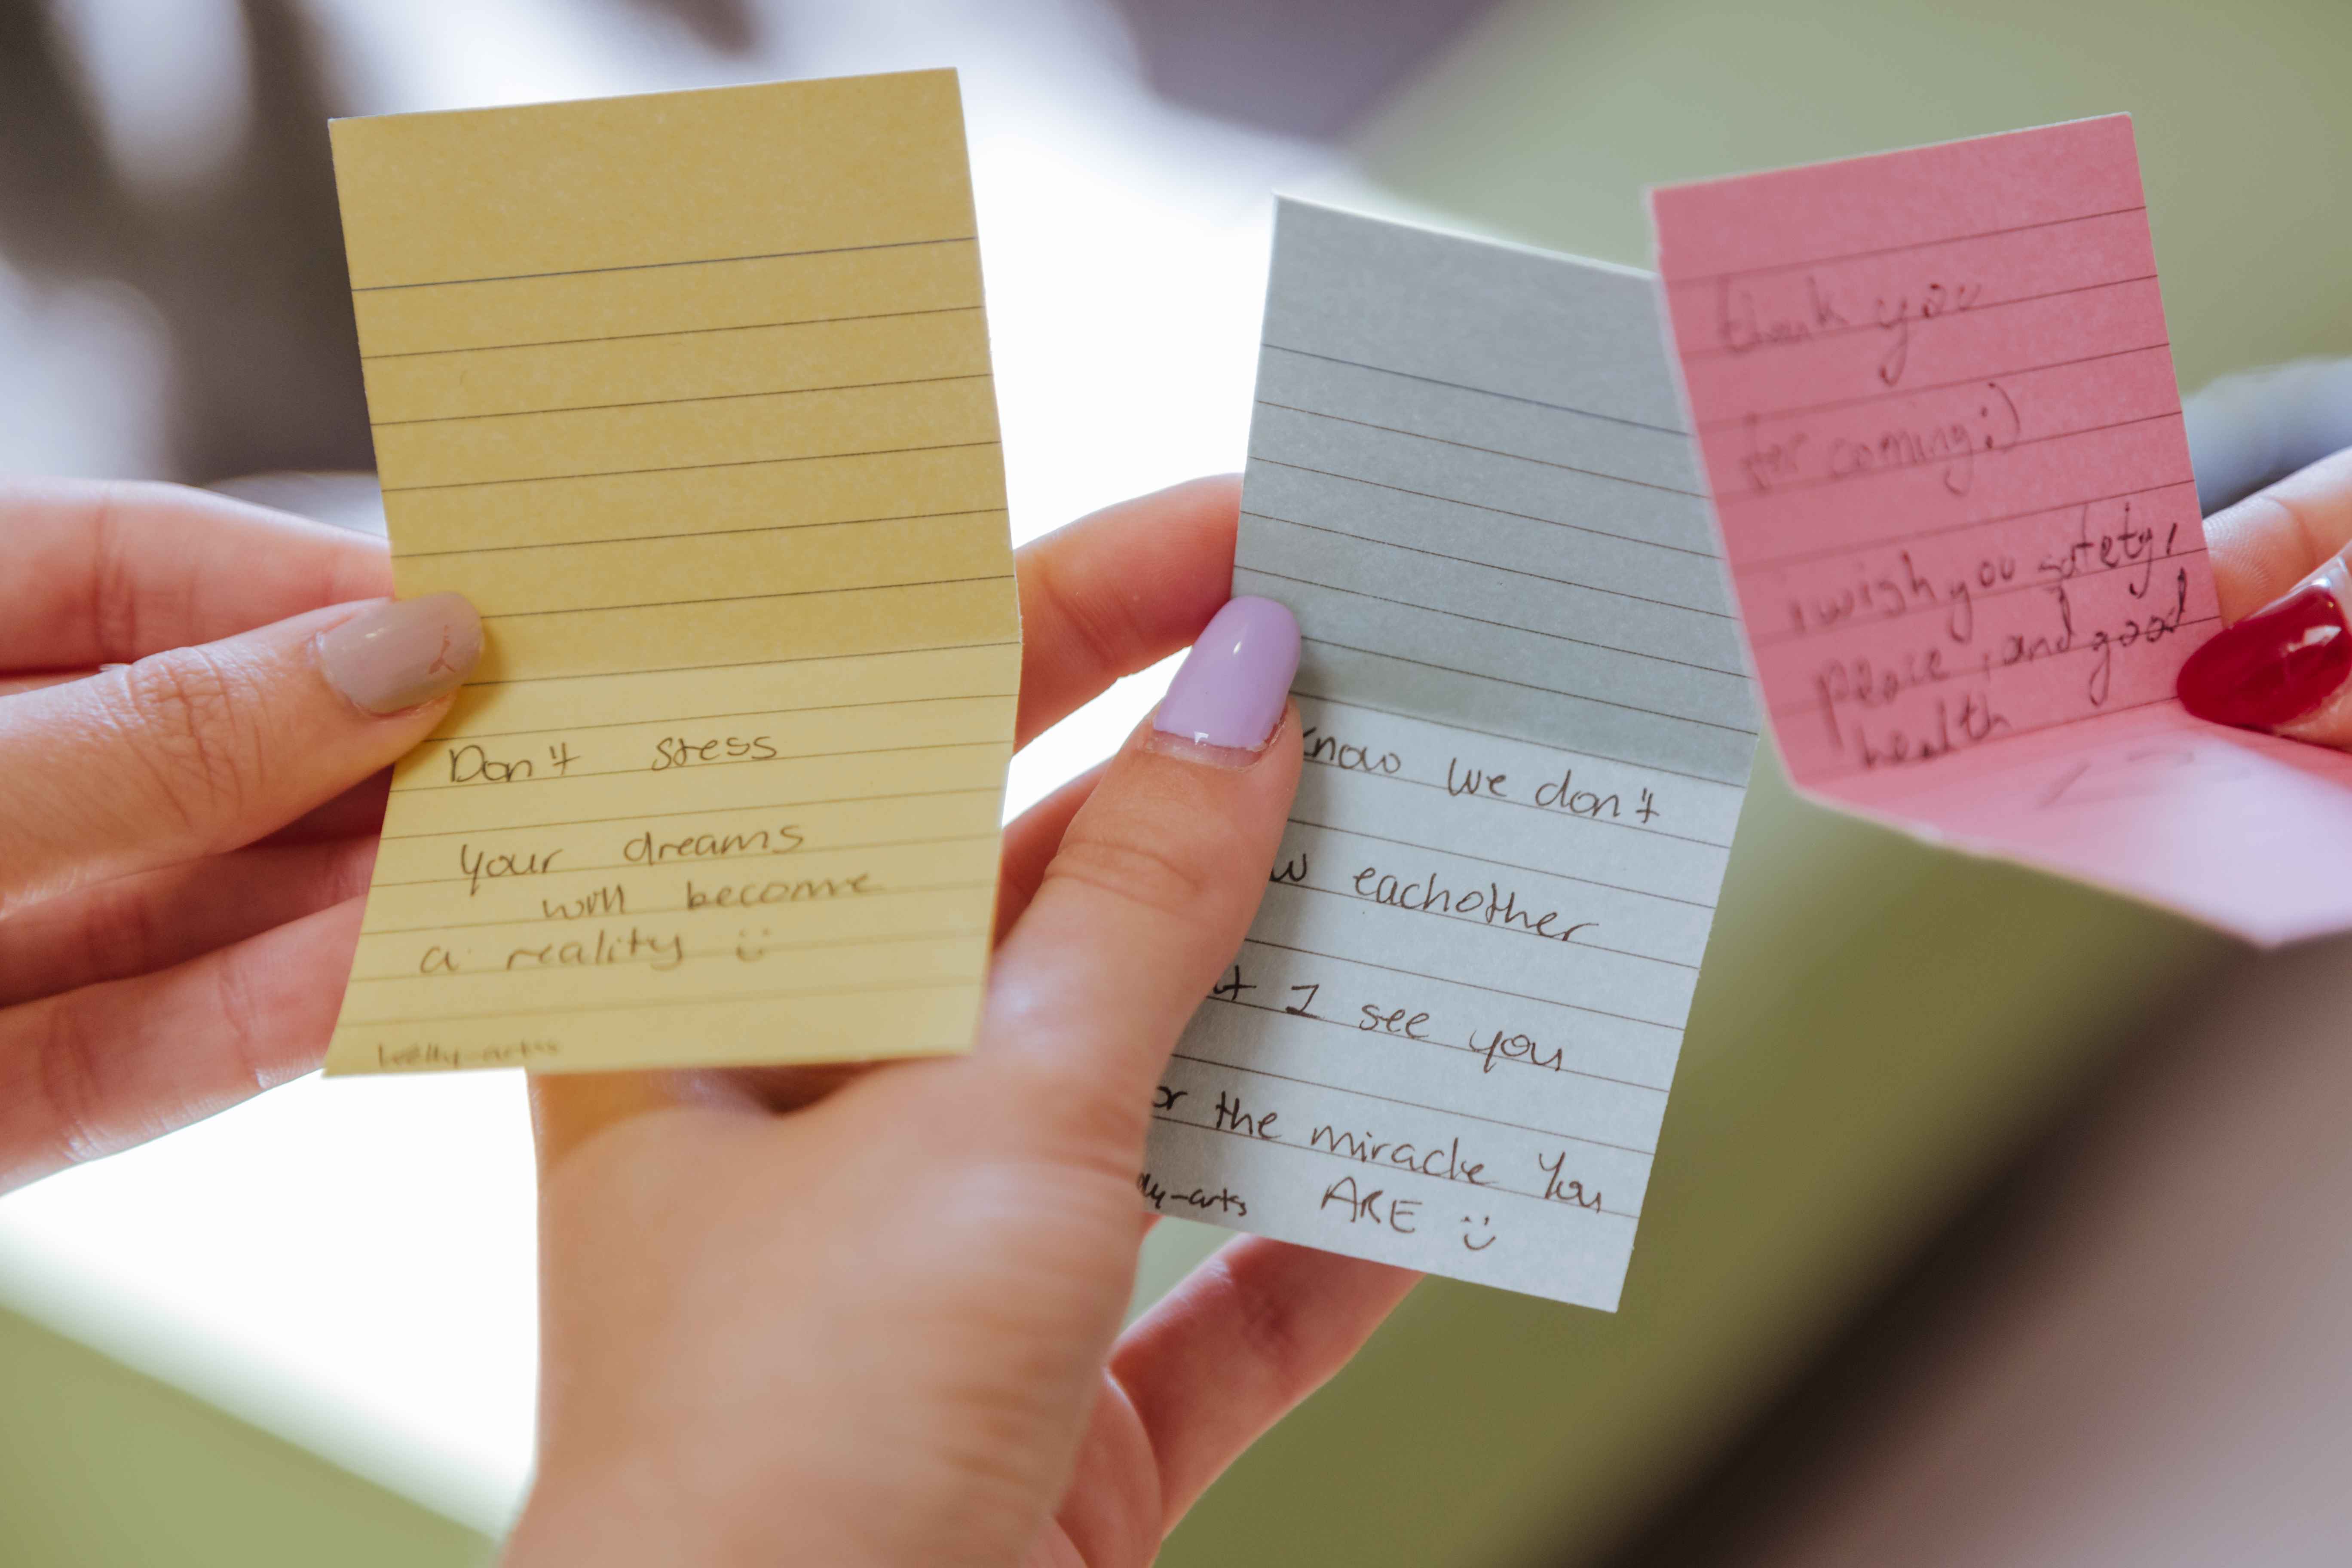 Don't stess
Your dreams
will become
a reality :)
know we don't
eachother
I see you
the miracle You
ARE :)
thank you
for coming :)
i wish you safety,
peace, and good
health